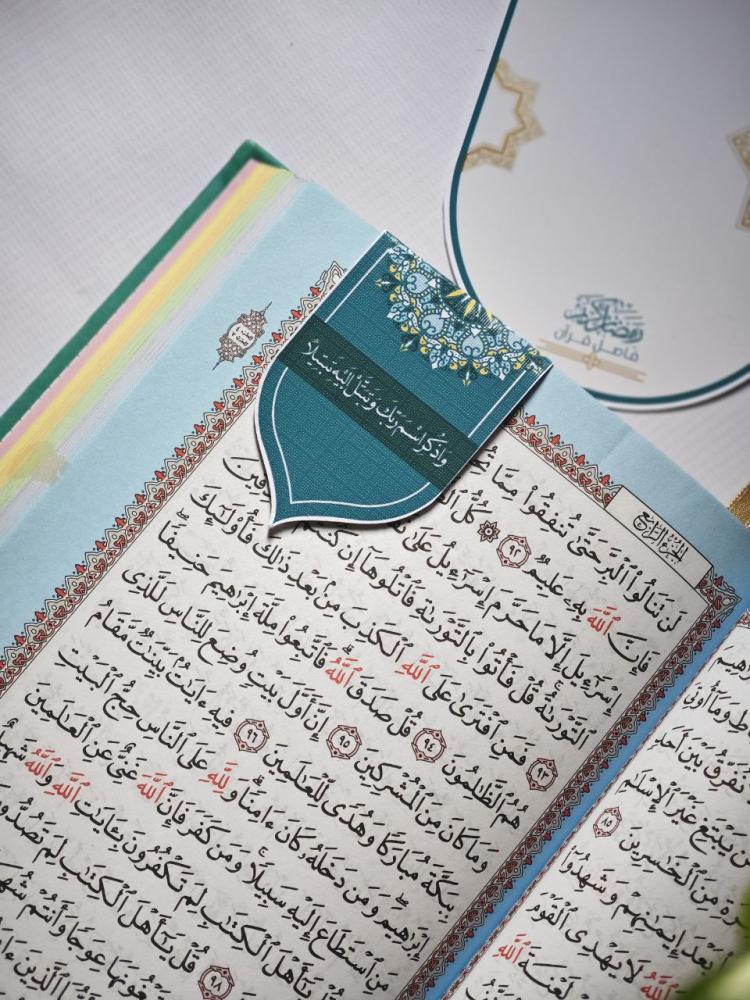 رمضان كريم
فاصل قرآن
وَاذْكُرِ اسْمَ رَبِّكَ وَتَبَتَّلْ إِلَيْهِ تَبْتِيلًا
الجزء الرابع
لَن تَنَالُوا۟ ٱلْبِرَّ حَتَّىٰ تُنفِقُوا۟ مِمَّا
فَإِنَّ ٱللَّهَ بِهِۦ عَلِيمٌ ٩٢ ۞ كُلُّ
إِسْرَٰٓءِيلَ إِلَّا مَا حَرَّمَ إِسْرَٰٓءِيلُ عَلَىٰ
ٱلتَّوْرَىٰةُ قُلْ فَأْتُوا۟ بِٱلتَّوْرَىٰةِ فَٱتْلُوهَآ إِن
٩٣ فَمَنِ ٱفْتَرَىٰ عَلَى ٱللَّهِ ٱلْكَذِبَ مِنۢ بَعْدِ ذَٰلِكَ فَأُو۟لَٰٓئِكَ
هُمُ ٱلظَّٰلِمُونَ ٩٤ قُلْ صَدَقَ ٱللَّهُ فَٱتَّبِعُوا۟ مِلَّةَ إِبْرَٰهِيمَ حَنِيفًا
وَمَا كَانَ مِنَ ٱلْمُشْرِكِينَ ٩٥ إِنَّ أَوَّلَ بَيْتٍ وُضِعَ لِلنَّاسِ لَلَّذِى
بِبَكَّةَ مُبَارَكًا وَهُدًى لِّلْعَٰلَمِينَ ٩٦ فِيهِ ءَايَٰتٌۢ بَيِّنَٰتٌ مَّقَامُ
إِبْرَٰهِيمَ وَمَن دَخَلَهُۥ كَانَ ءَامِنًا وَلِلَّهِ عَلَى ٱلنَّاسِ حِجُّ ٱلْبَيْتِ
مَنِ ٱسْتَطَاعَ إِلَيْهِ سَبِيلًا وَمَن كَفَرَ فَإِنَّ ٱللَّهَ غَنِىٌّ عَنِ ٱلْعَٰلَمِينَ
قُلْ يَٰٓأَهْلَ ٱلْكِتَٰبِ لِمَ تَكْفُرُونَ بِـَٔايَٰتِ ٱللَّهِ وَٱللَّهُ
٩٨ قُلْ يَٰٓأَهْلَ ٱلْكِتَٰبِ لِمَ تَصُدُّونَ
عِوَجًا وَأَنتُمْ
ٱلَّذِينَ
نُفَرِّقُ بَيْنَ أَحَدٍ
يَبْتَغِ غَيْرَ ٱلْإِسْلَٰمِ
مِنَ ٱلْخَٰسِرِينَ ٨٥
بَعْدَ إِيمَٰنِهِمْ وَشَهِدُوٓا۟
ٱللَّهُ لَا يَهْدِى ٱلْقَوْمَ
لَعْنَةَ ٱللَّهِ